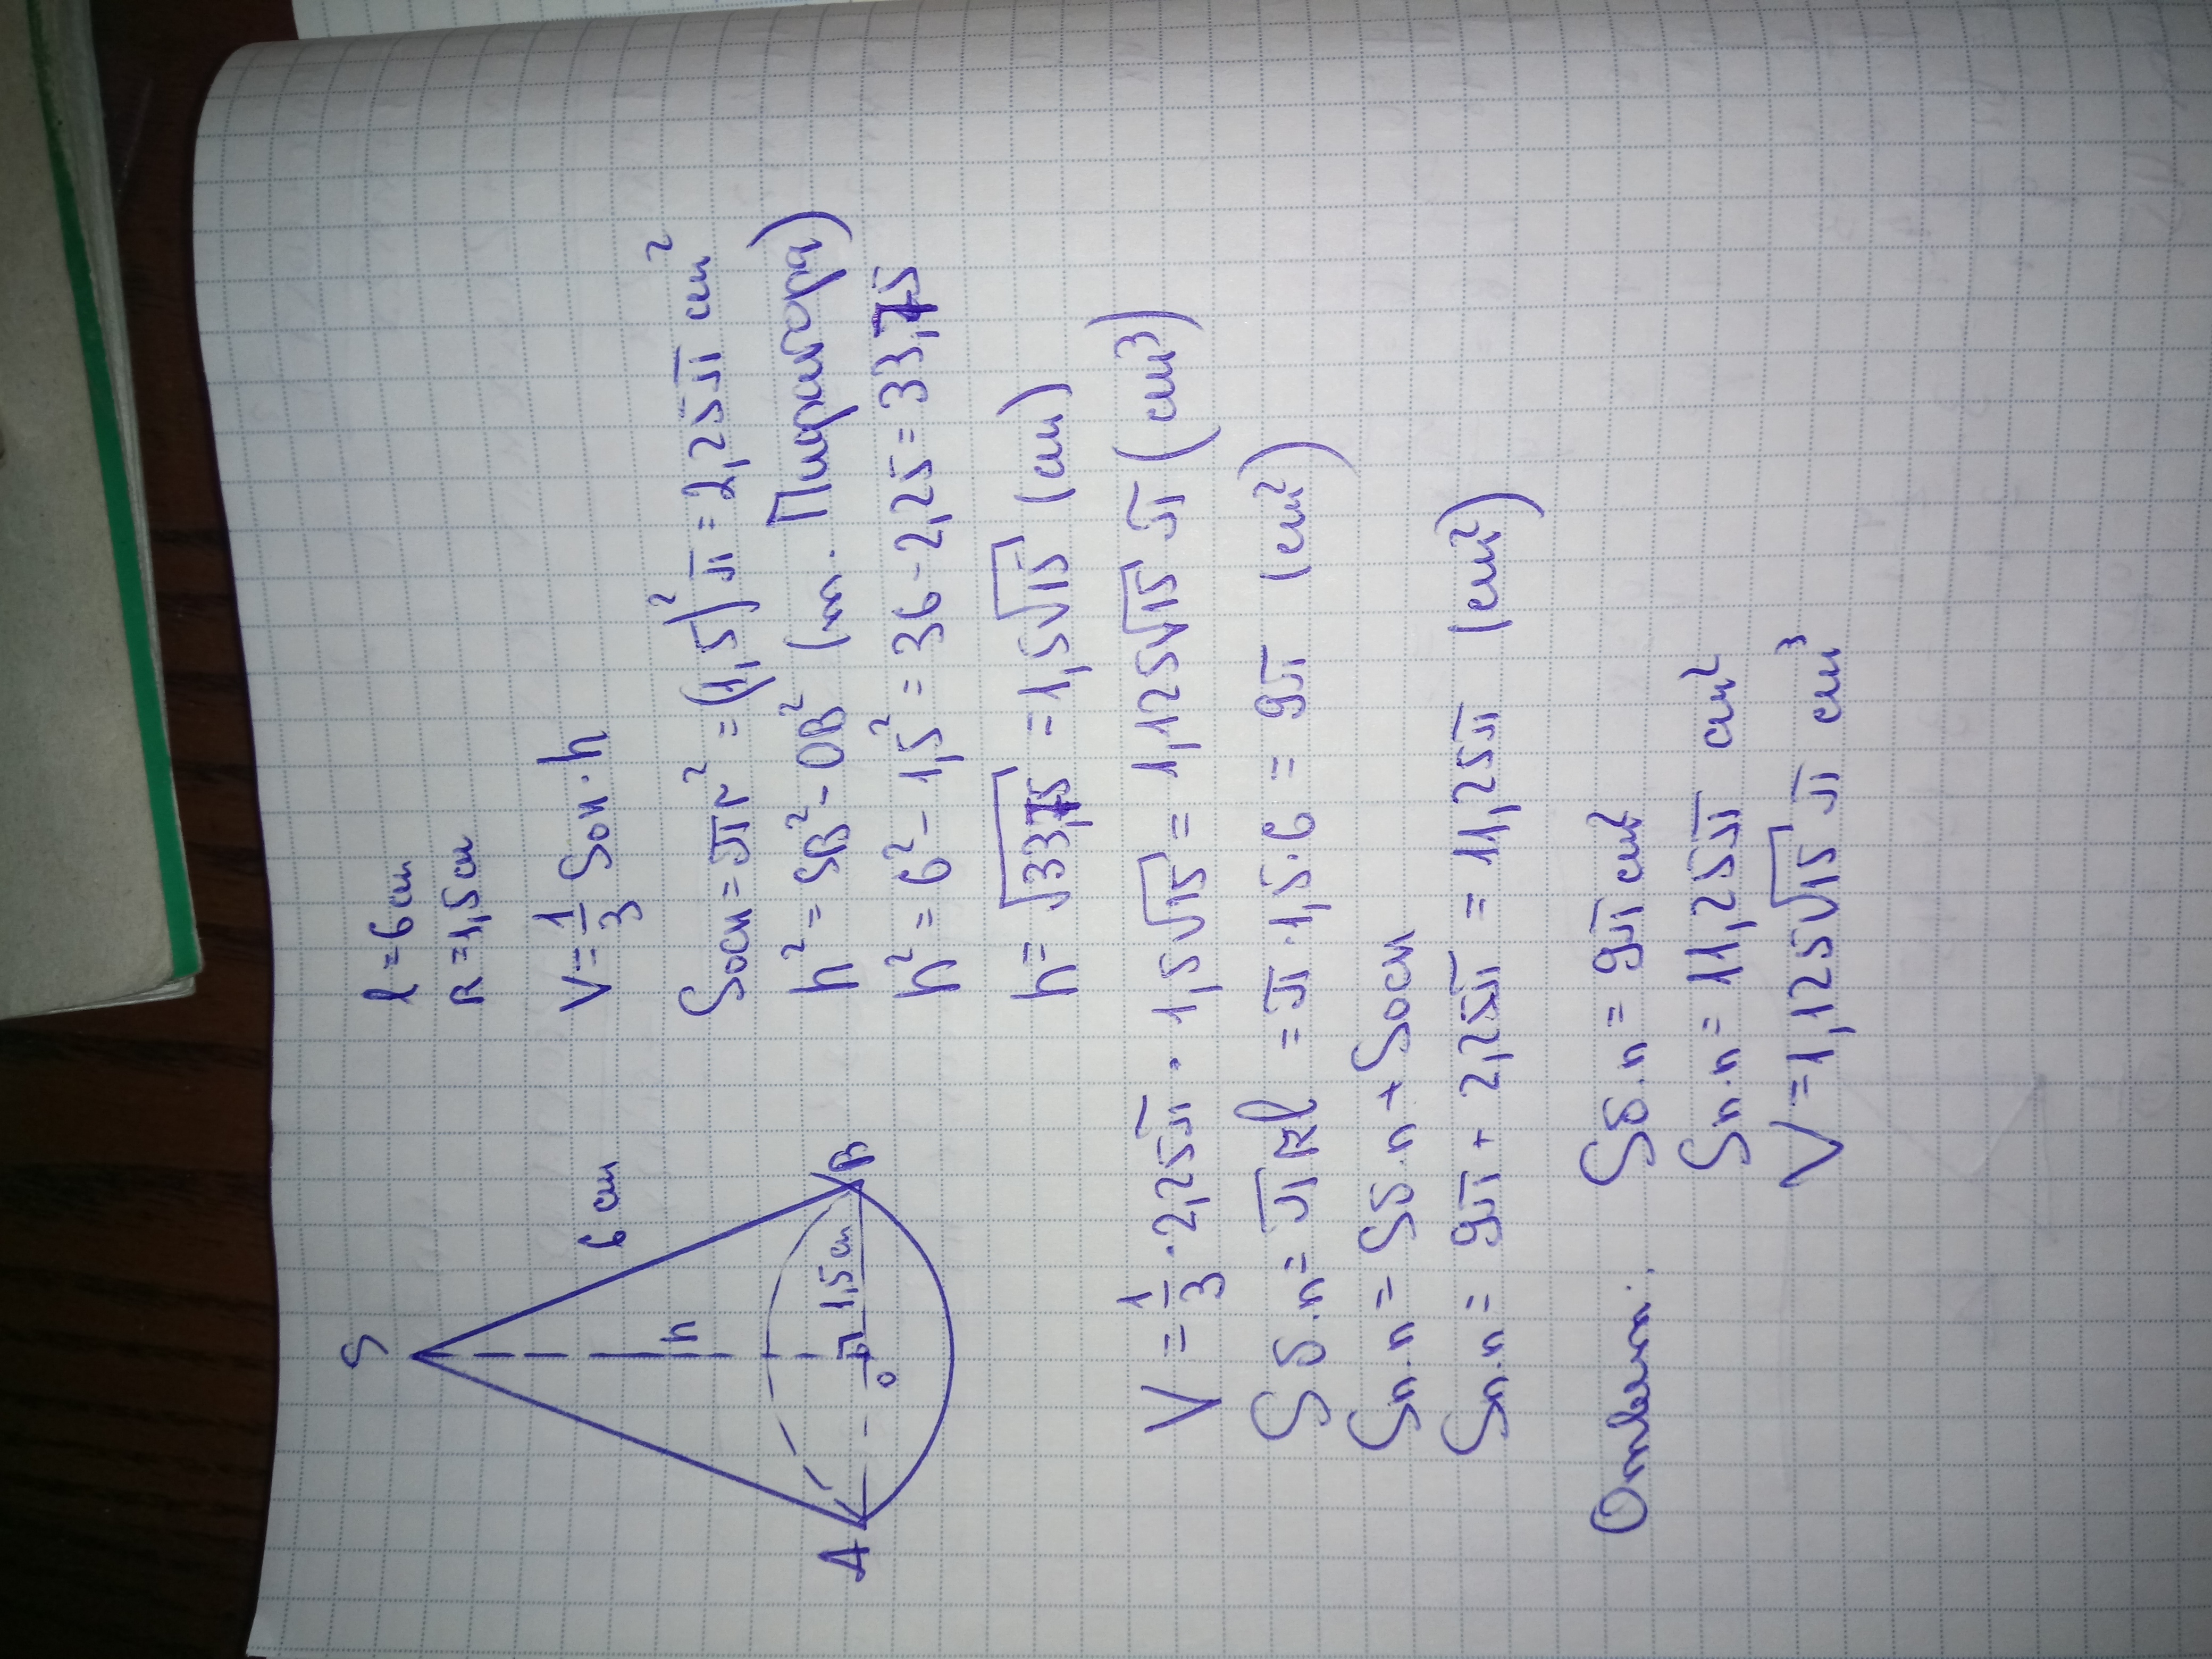 S
6 см
h
1,5 см
О
A
B
l = 6 см
R = 1,5 см
V = 1/3 Sосн · h
Sосн = πr² = (1,5)² π = 2,25π см²
h² = SB² - OB² (т. Пифагора)
h² = 6² - 1,5² = 36 - 2,25 = 33,75
h = √33,75 = 1,5√15 (см)
V = 1/3 · 2,25π · 1,5√15 = 1,125√15 π (см³)
Sб.п = πRl = π · 1,5 · 6 = 9π (см²)
Sп.п = Sб.п + Sосн
Sп.п = 9π + 2,25π = 11,25π (см²)
Ответ: Sб.п = 9π см²
Sп.п = 11,25π см²
V = 1,125√15 π см³